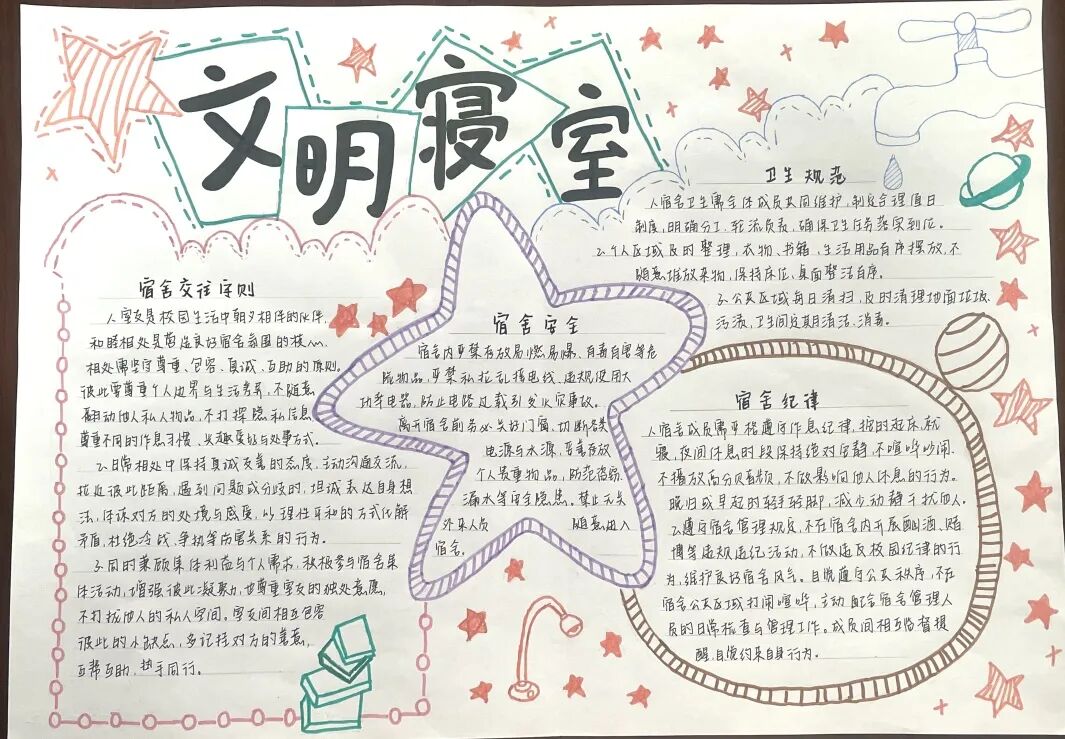 文明寝室
宿舍交往守则
1.室友是校园生活中朝夕相伴的伙伴,
和睦相处是营造良好宿舍氛围的核心,
相处需坚守尊重、包容、真诚、互助的原则。
彼此需尊重个人边界与生活差异,不随意
翻动他人私人物品,不打探隐私信息
尊重不同的作息习惯、兴趣爱好与处事方式。
2.日常相处中保持真诚友善的态度,主动沟通交流,
拉近彼此距离,遇到问题或分歧时,坦诚表达自身想
法,体谅对方的处境与感受,以理性平和的方式化解
矛盾,杜绝冷战、争执等伤害关系的行为。
3.同时兼顾集体利益与个人需求,积极参与宿舍集
体活动,增强彼此凝聚力,也尊重室友的独处意愿,
不打扰他人的私人空间。室友间相互包容
彼此的小缺点,多记挂对方的善意,
互帮互助、携手同行。
宿舍安全
宿舍内严禁存放易燃易爆、有毒有害等危
险物品,严禁私拉乱接电线、违规使用大
功率电器,防止电路过载引发火灾事故。
离开宿舍前务必关好门窗、切断各类
电源与水源,妥善存放
个人贵重物品,防范盗窃、
漏水等安全隐患。禁止无关
外来人员 随意进入
宿舍。
卫生规范
1.宿舍卫生需全体成员共同维护,制定合理值日
制度,明确分工、轮流负责,确保卫生任务落实到位。
2.个人区域及时整理,衣物、书籍、生活用品有序摆放,不
随意堆放杂物,保持床位、桌面整洁有序。
3.公共区域每日清扫,及时清理地面垃圾、
污渍,卫生间定期清洁、消毒。
宿舍纪律
1.宿舍成员需严格遵守作息纪律,按时起床、就
寝,夜间休息时段保持绝对安静,不喧哗吵闹、
不播放高分贝音频,不做影响他人休息的行为。
晚归或早起时轻手轻脚,减少动静干扰他人。
2.遵守宿舍管理规定,不在宿舍内开展酗酒、赌
博等违规违纪活动,不做违反校园纪律的行
为,维护良好宿舍风气。自觉遵守公共秩序,不在
宿舍公共区域打闹喧哗,主动配合宿舍管理人
员的日常检查与管理工作。成员间相互监督提
醒,自觉约束自身行为。